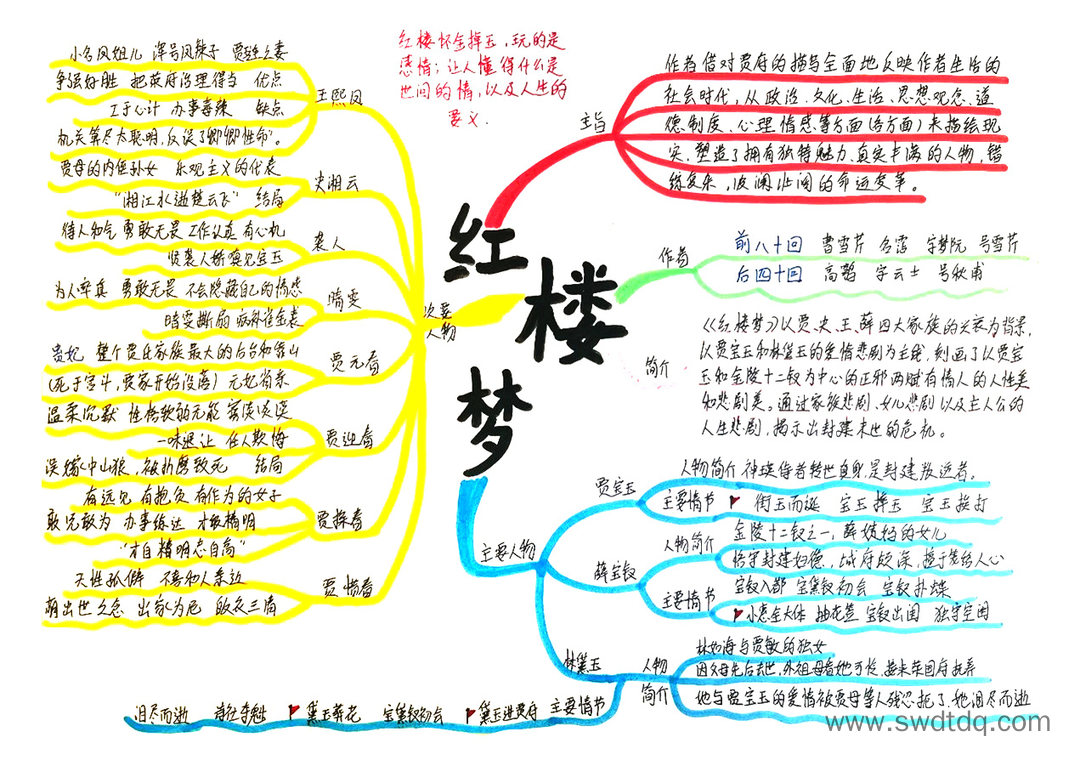 红楼梦
红楼怀金掉玉，玩的是
感情；让人懂得什么是
世间的情，以及人生的
要义.
主旨
作者借对贾府的描写全面地反映作者生活的
社会时代，从政治、文化、生活、思想观念、道
德制度、心理情感等方面(各方面)来描绘现
实，塑造了拥有独特魅力、真实丰满的人物，错
综复杂，波澜壮阔的命运变革。
作者
前八十回 曹雪芹 名霑 字梦阮 号雪芹
后四十回 高鹗 字云士 号秋甫
简介
《红楼梦》以贾、史、王、薛四大家族的兴衰为背景，
以贾宝玉和林黛玉的爱情悲剧为主线，刻画了以贾宝
玉和金陵十二钗为中心的正邪两赋有情人的人性美
和悲剧美。通过家族悲剧、女儿悲剧以及主人公的
人生悲剧，揭示出封建末世的危机。
主要人物
贾宝玉
人物简介 神瑛侍者转世真身是封建叛逆者。
主要情节 衔玉而诞 宝玉摔玉 宝玉挨打
薛宝钗
人物简介
金陵十二钗之一，薛姨妈的女儿
恪守封建妇德，城府较深，善于笼络人心
主要情节
宝钗入都 宝黛钗初会 宝钗扑蝶
小惠全大体 抽花签 宝钗出闺 独守空闺
林黛玉
人物
简介
林如海与贾敏的独女
因父母先后去世，外祖母看她可怜，接来荣国府抚养
她与贾宝玉的爱情被贾母等人残忍扼了，她泪尽而逝
主要情节
黛玉进贾府 宝黛钗初会 黛玉葬花 泪尽而逝
次要
人物
王熙凤
小名凤姐儿 浑号凤辣子 贾琏之妻
争强好胜 把荣府治理得当 优点
工于心计 办事毒辣 缺点
机关算尽太聪明，反误了卿卿性命。
史湘云
贾母的内侄孙女 乐观主义的代表
“湘江水逝楚云飞” 结局
袭人
待人和气 勇敢无畏 工作认真 有心机
贤袭人娇嗔见宝玉
晴雯
为人率真 勇敢无畏 不会隐藏自己的情感
晴雯撕扇 病补雀金裘
贾元春
贵妃 整个贾氏家族最大的后台和靠山
(死于宫斗，贾家开始没落) 元妃省亲
贾迎春
温柔沉默 性格软弱无能
一味退让 任人欺侮
误嫁中山狼，被折磨致死 结局
贾探春
有远见 有抱负 有作为的女子
敢说敢为 办事练达 才敏精明
“才自精明志自高”
贾惜春
天性孤僻 不喜和人亲近
萌出世之念 出家为尼
www.swdtdq.com